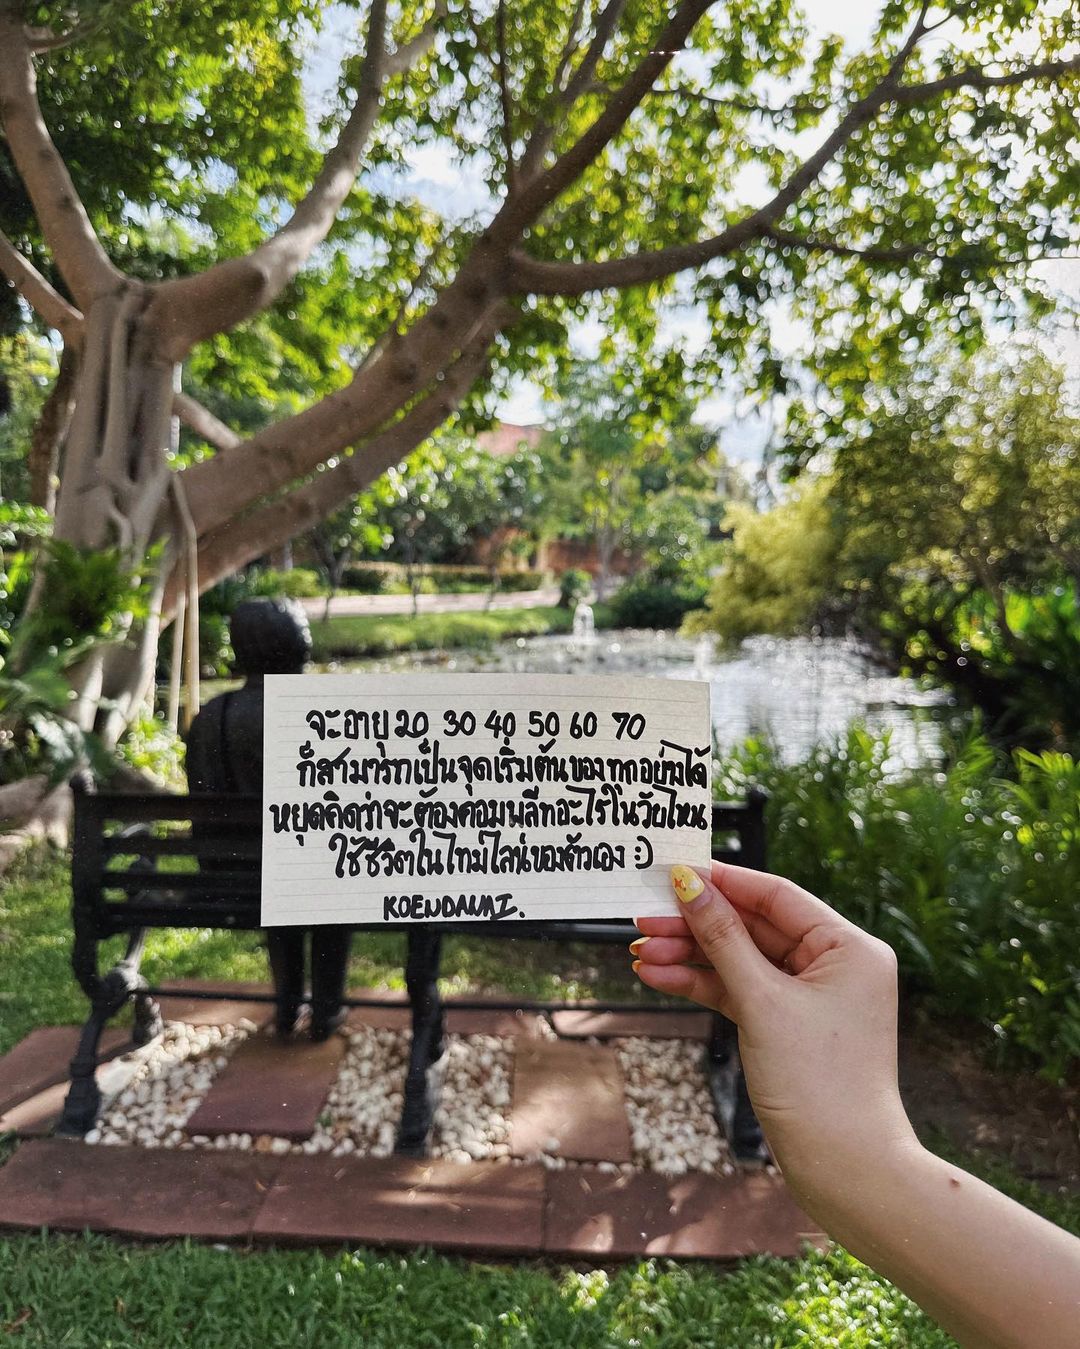 จะอายุ 20 30 40 50 60 70
ก็สามารถเป็นจุดเริ่มต้นของทุกอย่างได้
หยุดคิดว่าจะต้องคอมพลีทอะไรในวัยไหน
ใช้ชีวิตในไทม์ไลน์ของตัวเอง :)
KOENDANAI.